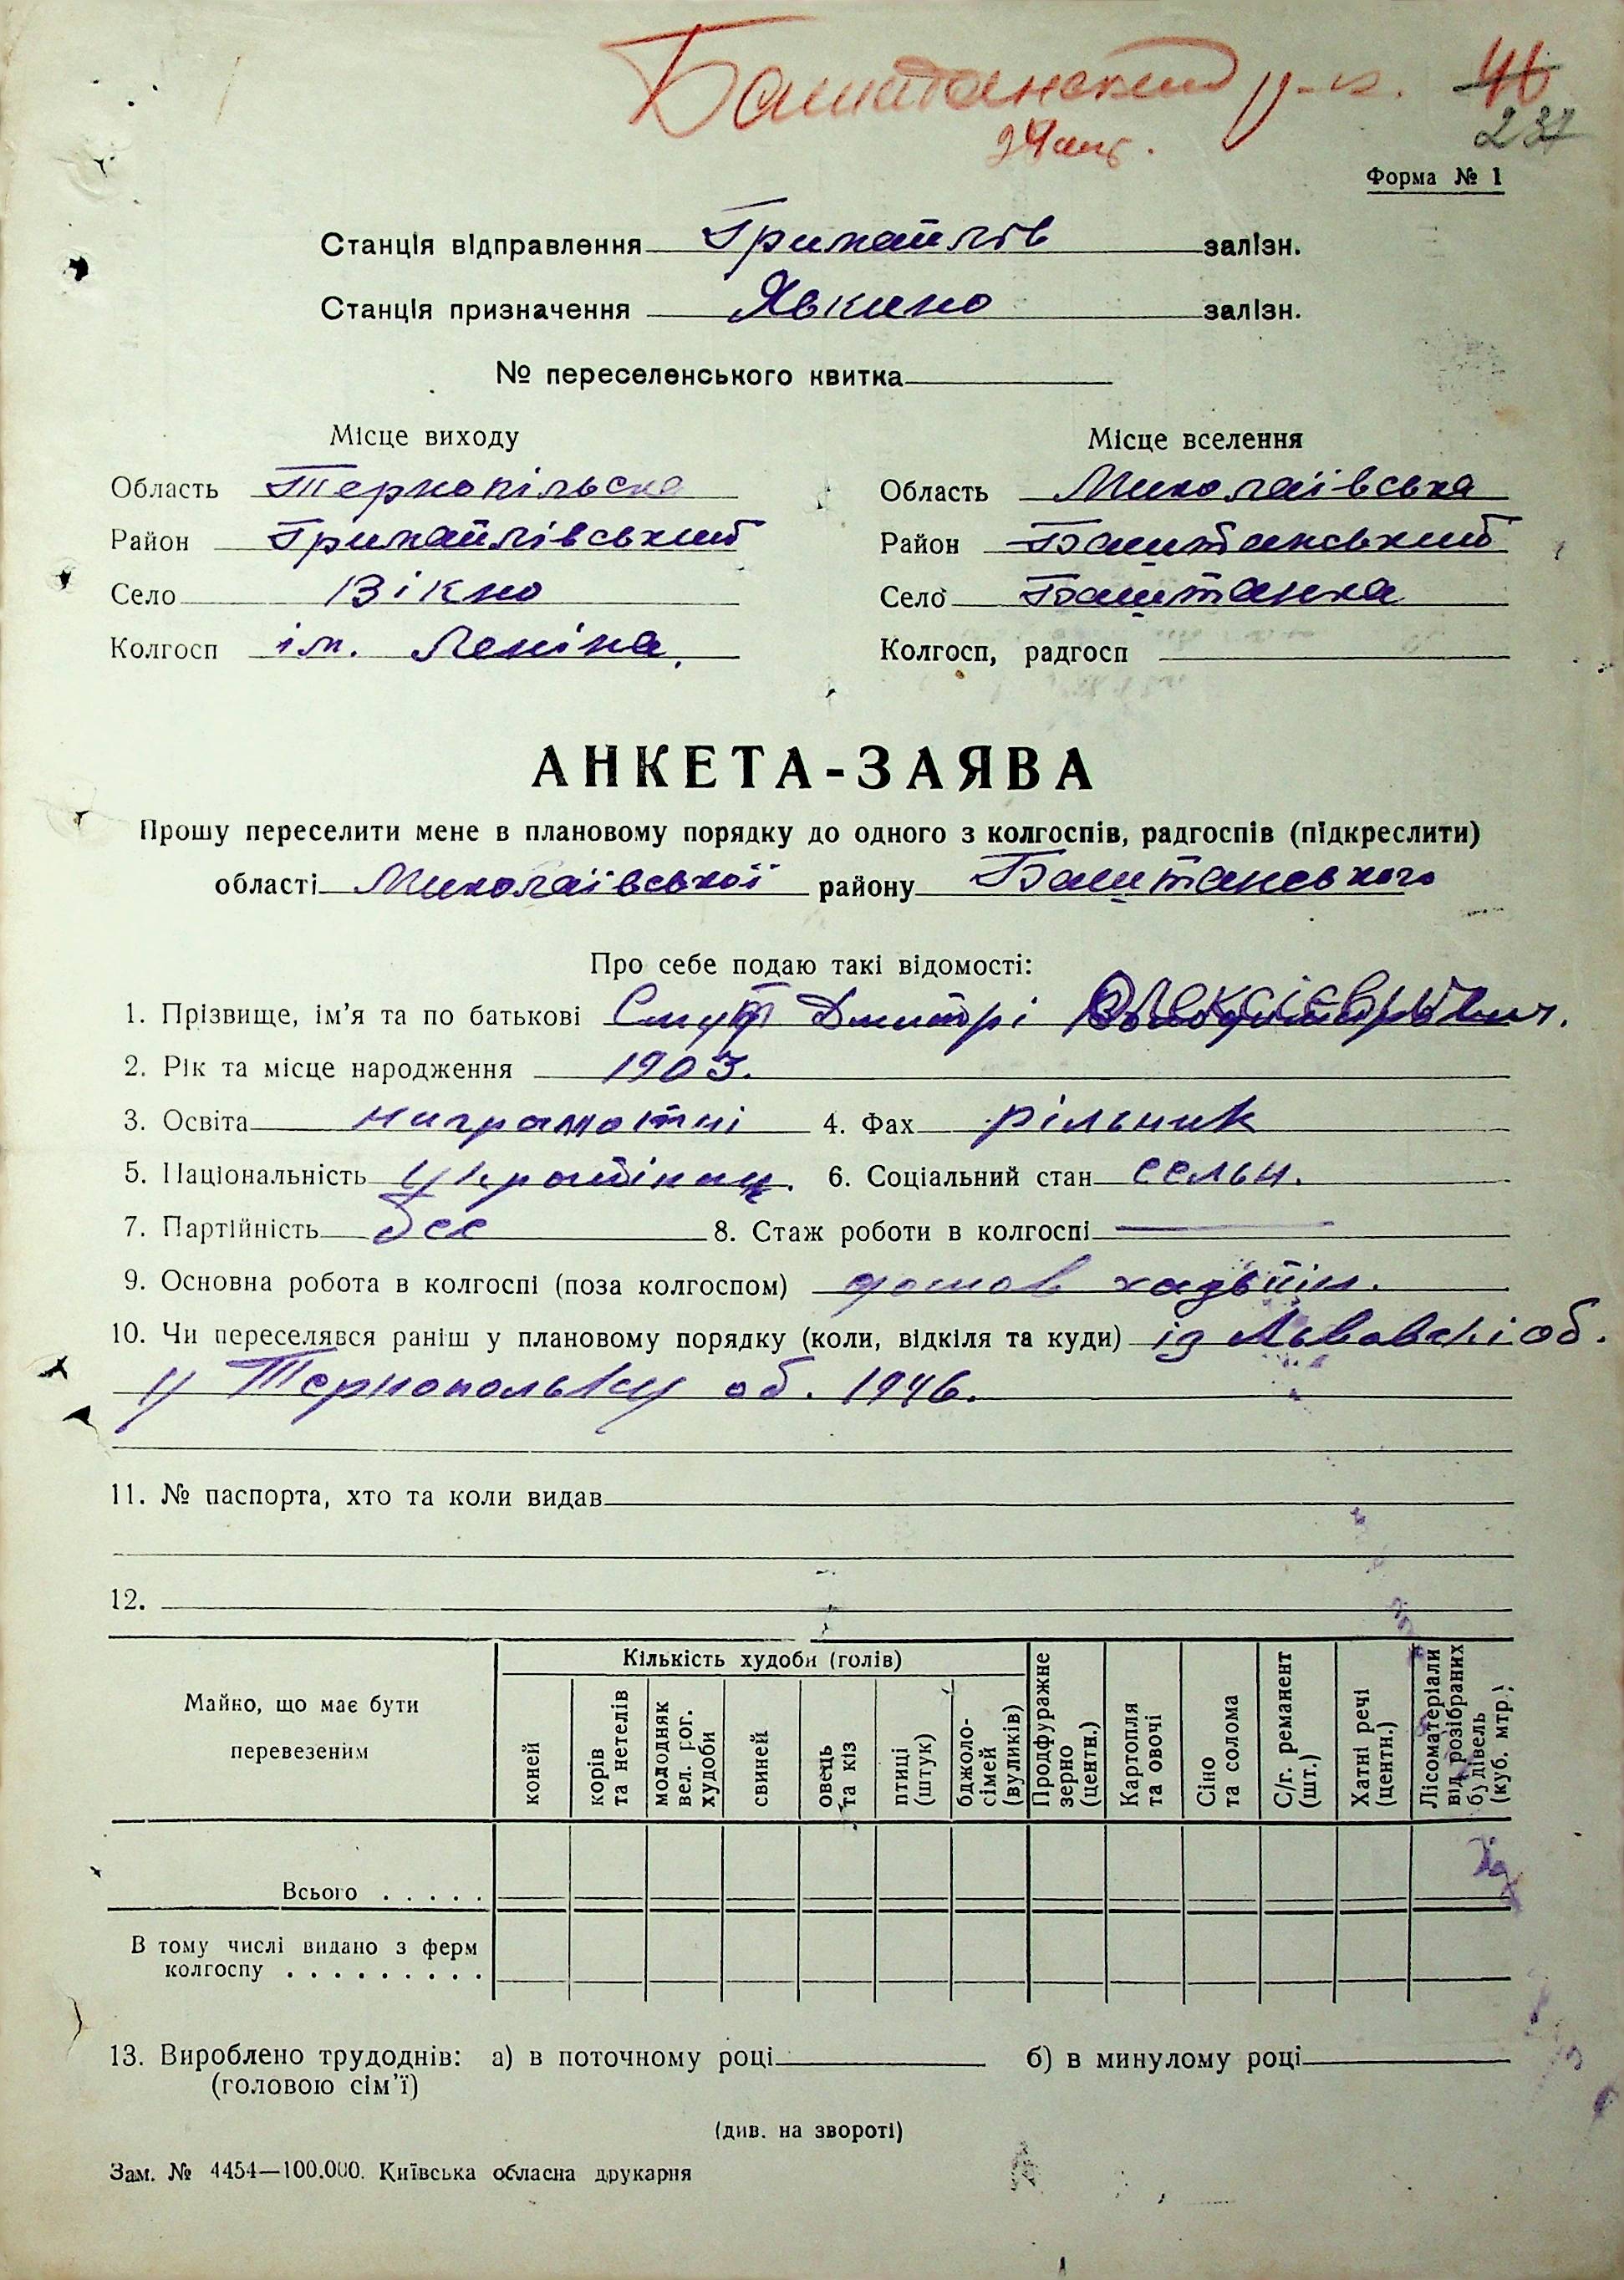 Баштанский р-н. 46
24 апр. 237
Форма № 1
Станція відправлення Гримайлів залізн.
Станція призначення Явкино залізн.
№ переселенського квитка
Місце виходу Місце вселення
Область Тернопільска Область Миколаївська
Район Гримайлівський Район Баштанський
Село Вікно Село Баштанка
Колгосп ім. Леніна, Колгосп, радгосп
АНКЕТА-ЗАЯВА
Прошу переселити мене в плановому порядку до одного з колгоспів, радгоспів (підкреслити)
області Миколаївської району Баштанського
Про себе подаю такі відомості:
1. Прізвище, ім'я та по батькові Дмитрі
2. Рік та місце народження 1903.
3. Освіта играмотні 4. Фах рільник
5. Національність Українец. 6. Соціальний стан сельн.
7. Партійність бес 8. Стаж роботи в колгоспі —
9. Основна робота в колгоспі (поза колгоспом) домов
10. Чи переселявся раніш у плановому порядку (коли, відкіля та куди) із Львовскі об.
у Тернопольку об. 1946.
11. № паспорта, хто та коли видав
12.
Майно, що має бути перевезеним
Кількість худоби (голів)
коней
корів та нетелів
молодняк вел. рог. худоби
свиней
овець та кіз
птиці (штук)
бджоло-сімей (вуликів)
Продфуражне зерно (центн.)
Картопля та овочі
Сіно та солома
С/г. реманент (шт.)
Хатні речі (центн.)
Лісоматеріали від розібраних будівель (куб. мтр.)
Всього . . . . .
В тому числі видано з ферм
колгоспу . . . . . . . . .
13. Вироблено трудоднів: а) в поточному році б) в минулому році
(головою сім'ї)
(див. на звороті)
Зам. № 4454—100.000. Київська обласна друкарня